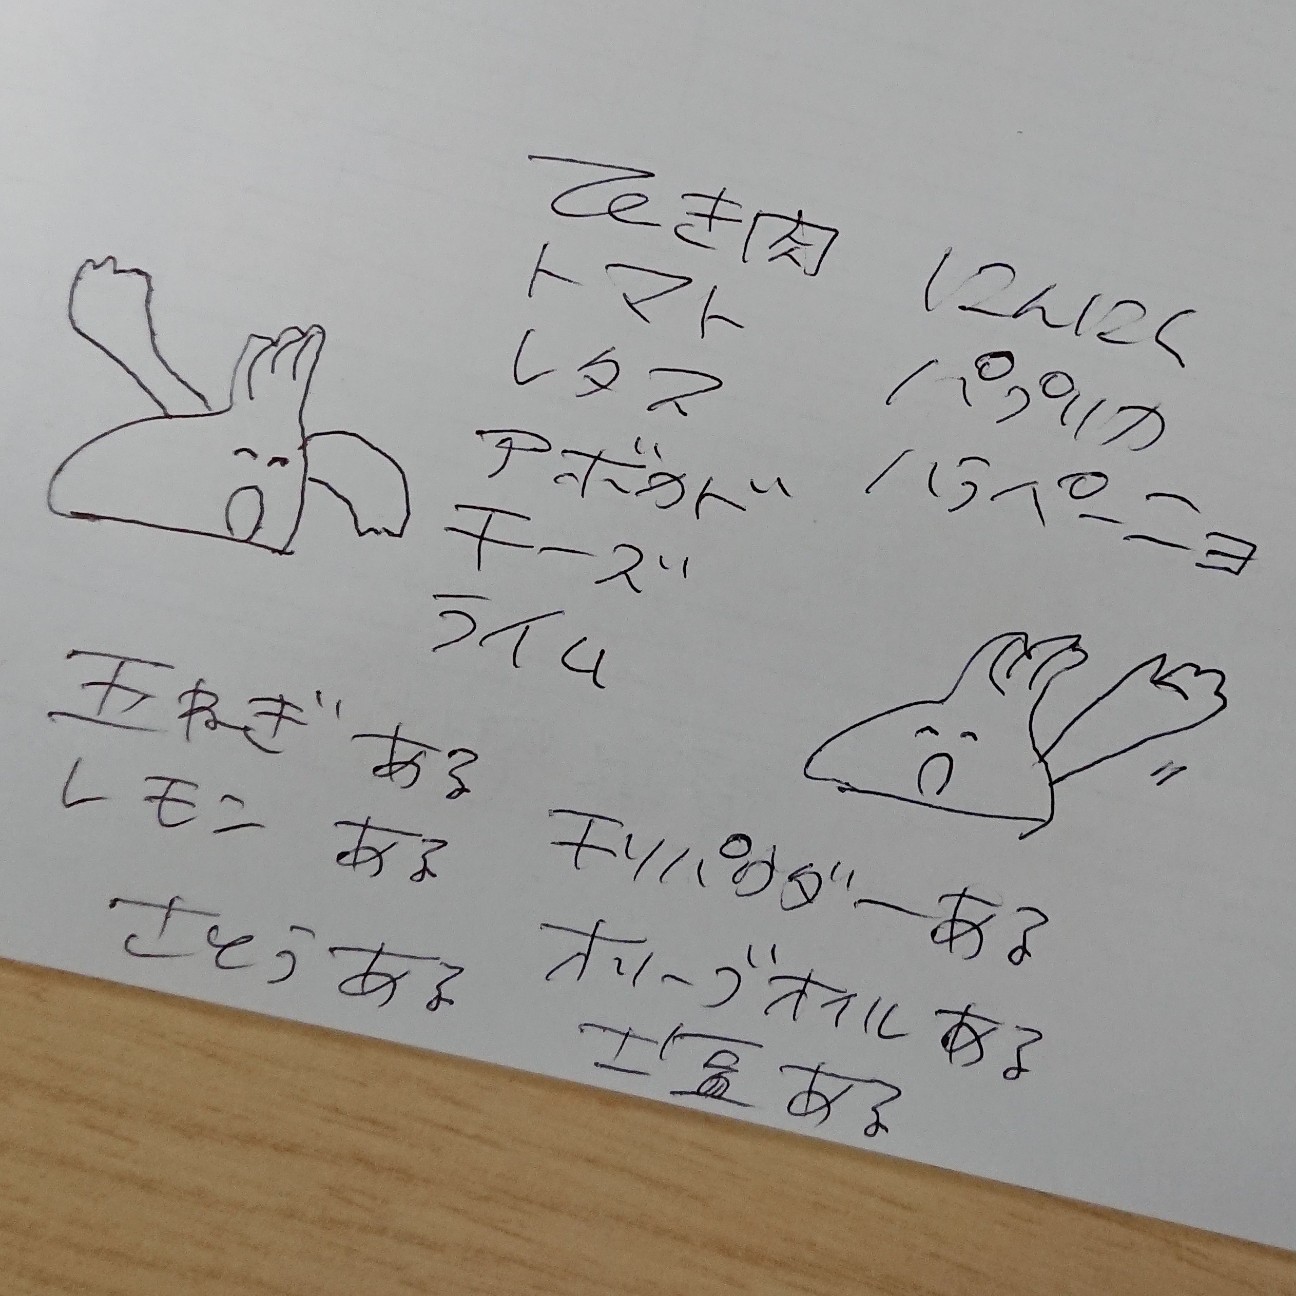 ひき肉
トマト
レタス
アボカド
チーズ
ライム
にんにく
パプリカ
ハラペーニョ
玉ねぎ ある
レモン ある
さとう ある
チリパウダー ある
オリーブオイル ある
塩 ある